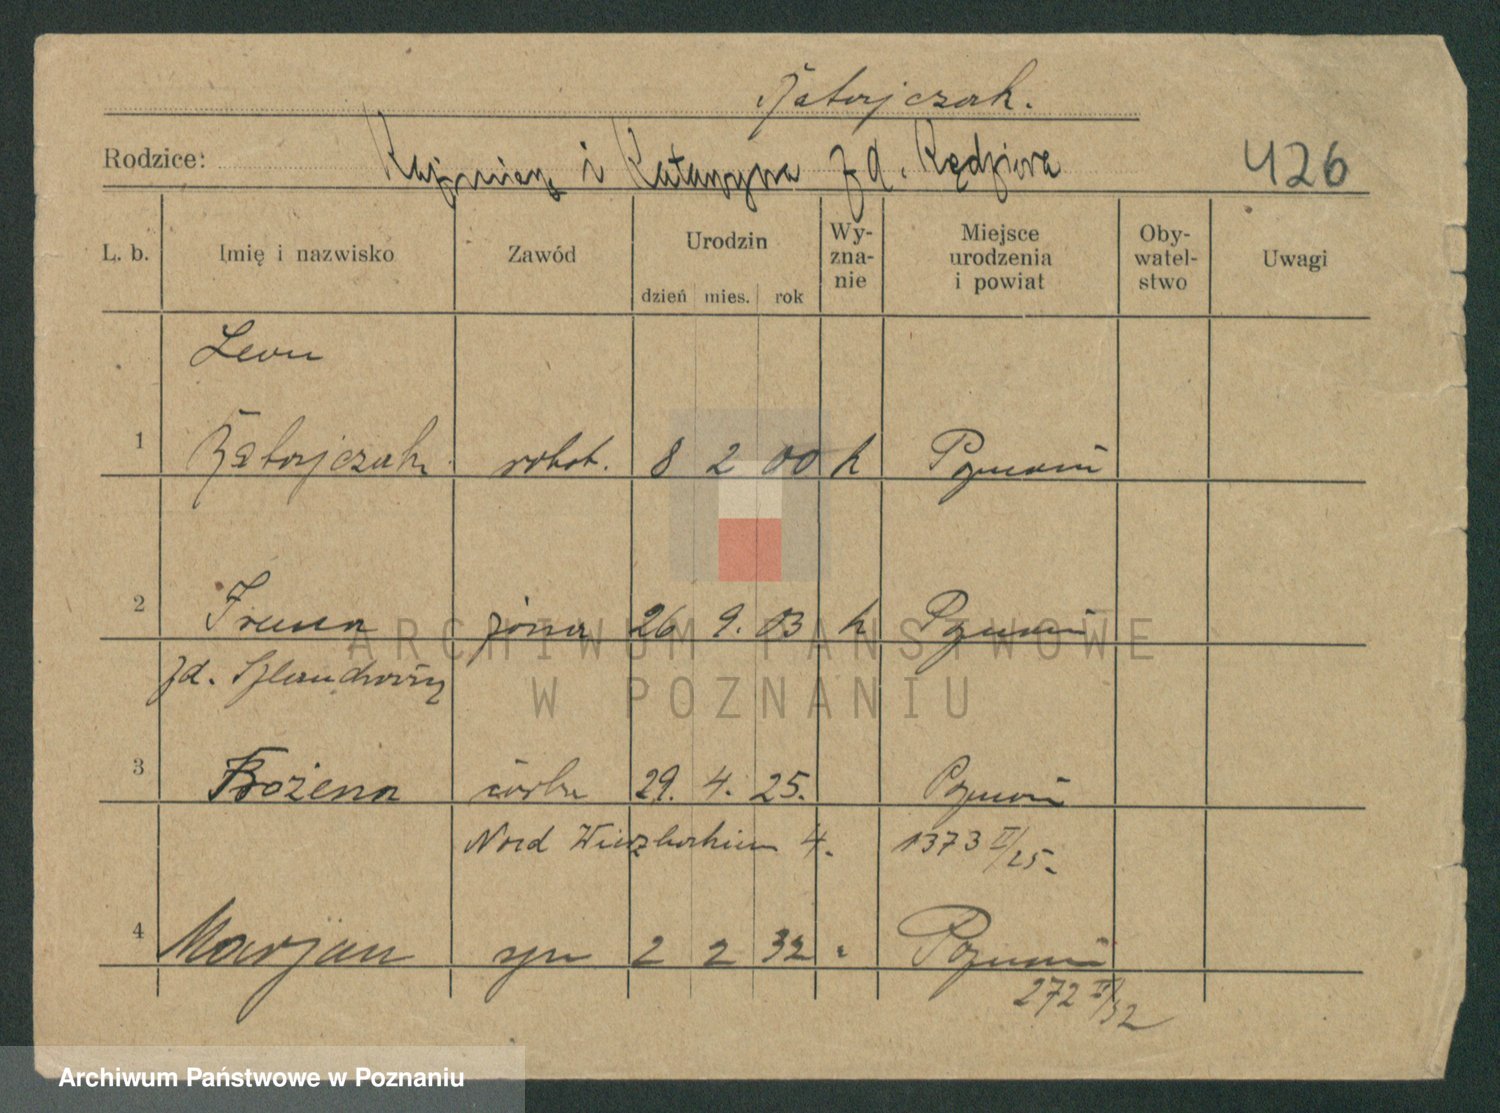 Ratajczak.
Rodzice: Kazimierz i Katarzyna zd. Kędziora 426
L. b. Imię i nazwisko Zawód Urodzin dzień mies. rok Wy-zna-nie Miejsce urodzenia i powiat Oby-watel-stwo Uwagi
Leon
1 Ratajczak robot. 8 2 00 k Poznań
2 Irena żona 26 9. 03 k Poznań
zd.
3 Bożena córka 29. 4. 25. Poznań
4. 1373 II/25.
4 Marjan syn 2 2 32 Poznań
272 II/32
ARCHIWUM PAŃSTWOWE
W POZNANIU
Archiwum Państwowe w Poznaniu